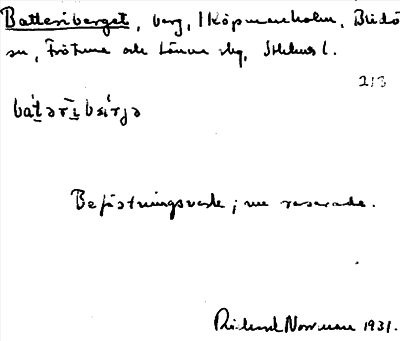 Batteriberget, berg, i Köpmanholm, Blidö
sn, Frötuna och Länna skg, Sthlms l.
213
Befästningsverk; nu raserade.
Rikard Norrman 1931.